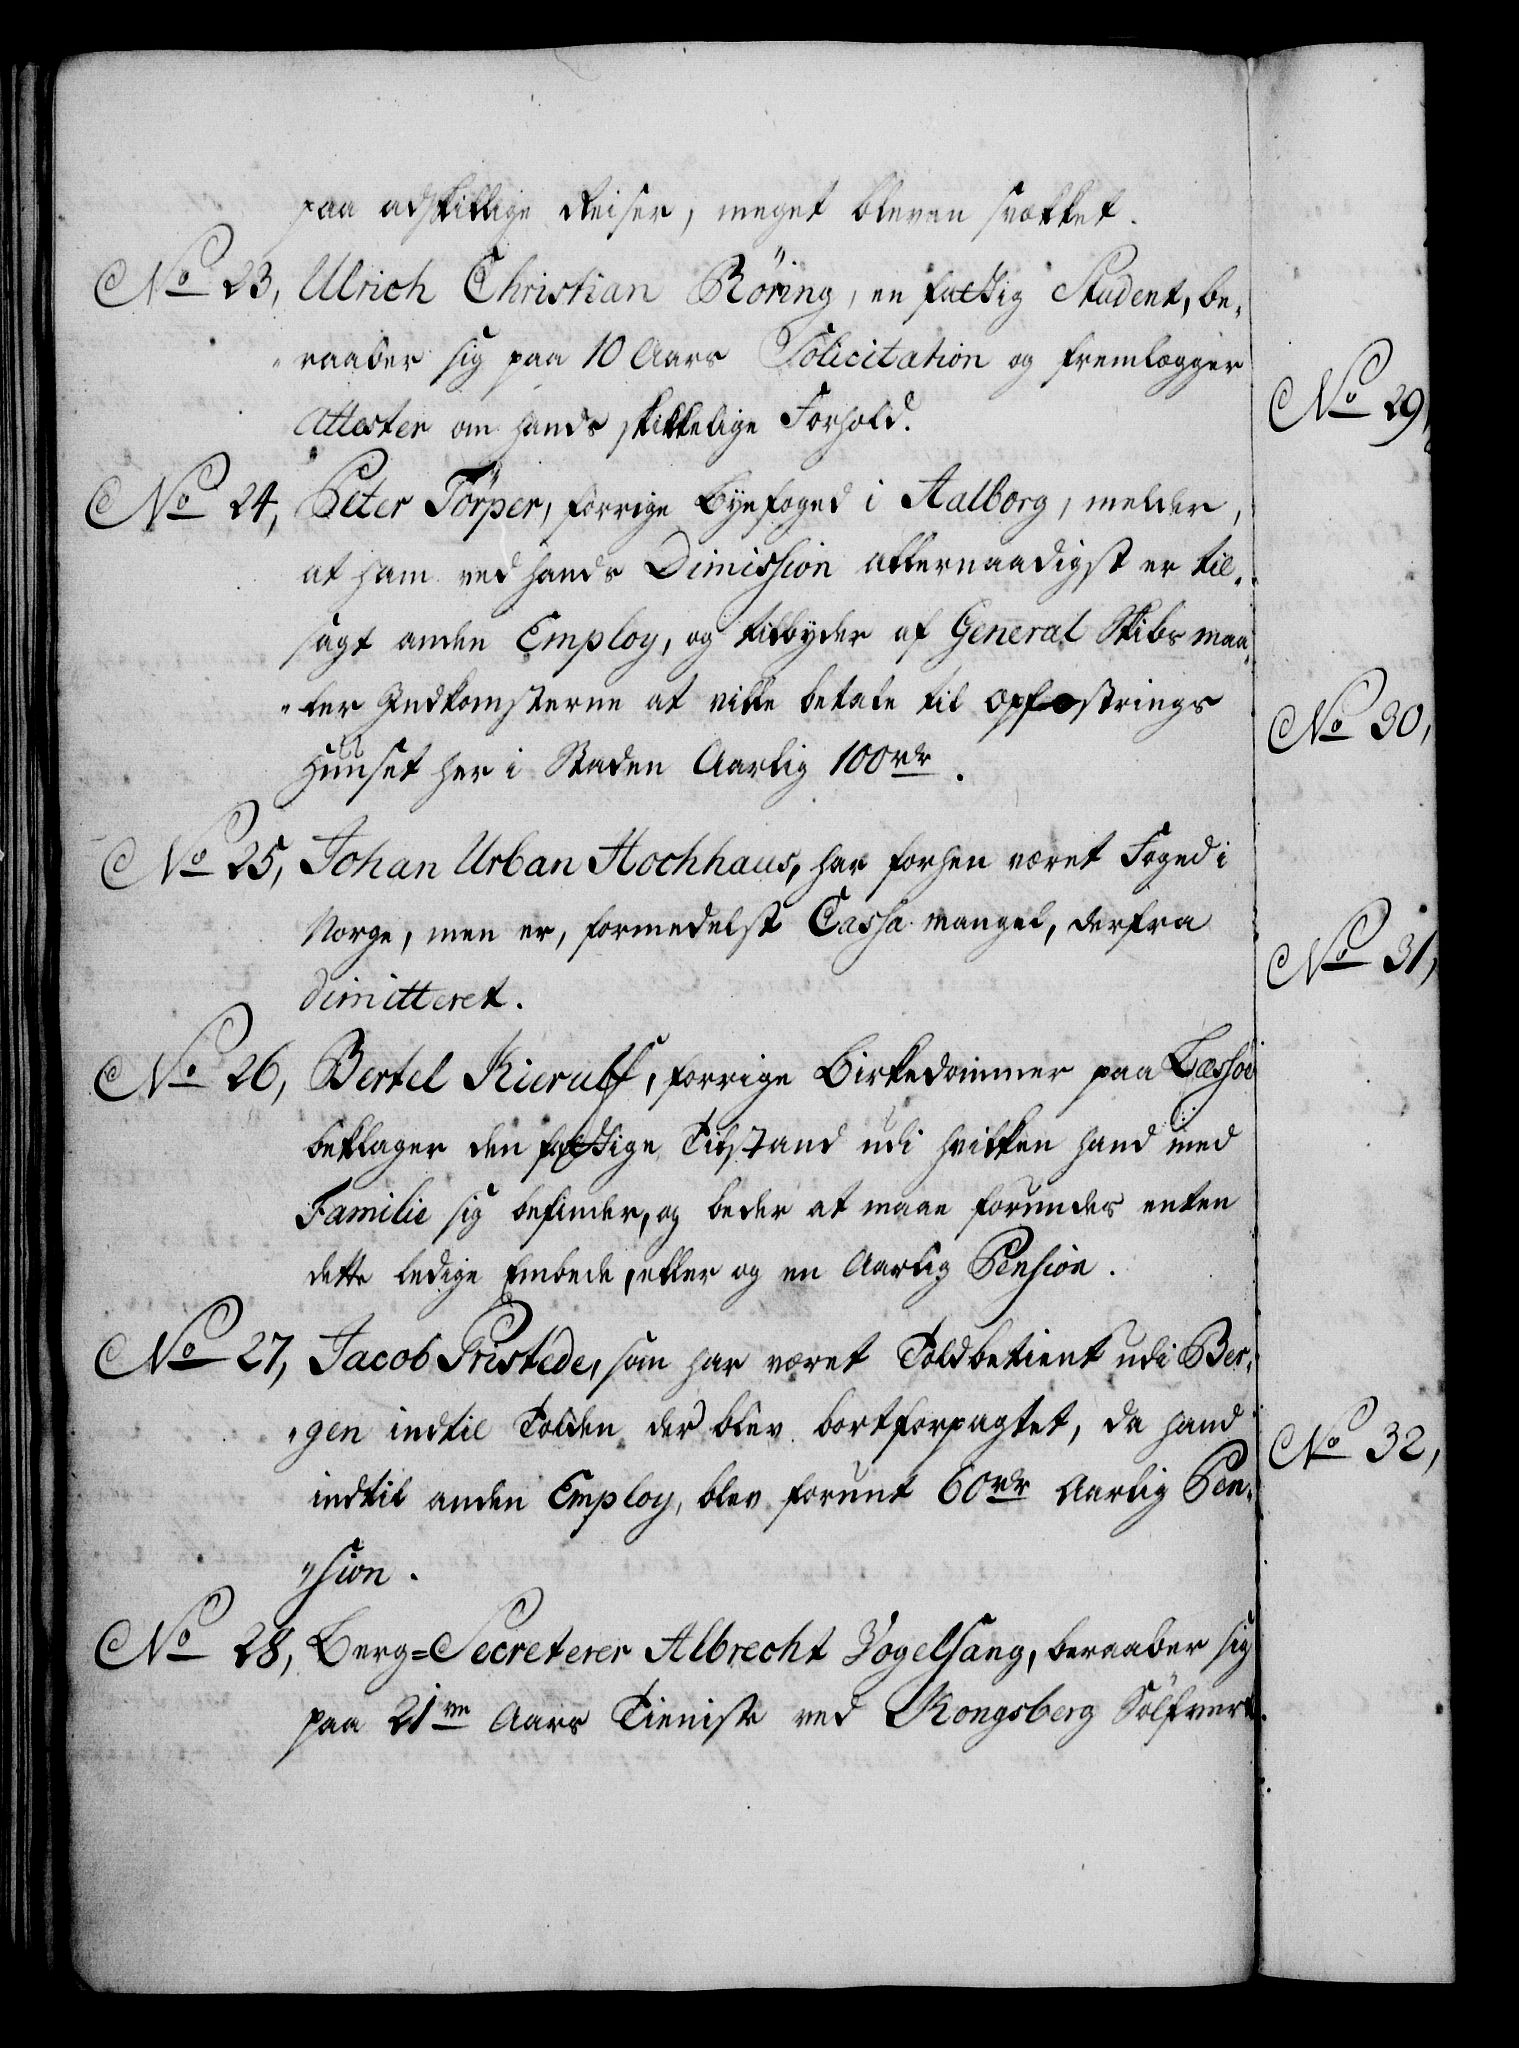 paa adskillige Reiser, meget bleven svækket.
No 23, Ulrich Christian Röring, en fattig Student, be-
raaber sig paa 10 Aars Solicitation og fremlægger
Attester om hands skikkelige Forhold.
No 24, Peter Törper, forrige Byefoged i Aalborg, melder,
at ham ved hands Dimission allernaadigst er til-
sagt anden Employ, og tilbyder af General Skibs maa-
ler Indkomsterne at ville betale til Opfostrings
Huuset her i Staden Aarlig 100 rdr.
No 25, Johan Urban Hochhaus, har forhen været Foged i
Norge, men er, formedelst Cassa mangel, derfra
dimitteret.
No 26, Bertel Kierulf, forrige Birkedommer paa Læssöe
beklager den fattige Tilstand udi hvilken hand med
Familie sig befinder, og beder at maae forundes enten
dette ledige Embede, eller og en Aarlig Pension.
No 27, Jacob Pristede, som har været Toldbetient udi Ber-
gen indtil Tolden der blev bortforpagtet, da hand
indtil anden Employ, blev forunt 60 rdr Aarlig Pen-
sion.
No 28, Berg=Secreterer Albrecht Vogelsang, beraaber sig
paa 21ve Aars Tieniste ved Kongsberg Sölfverk.
No 29,
No 30,
No 31,
No 32,